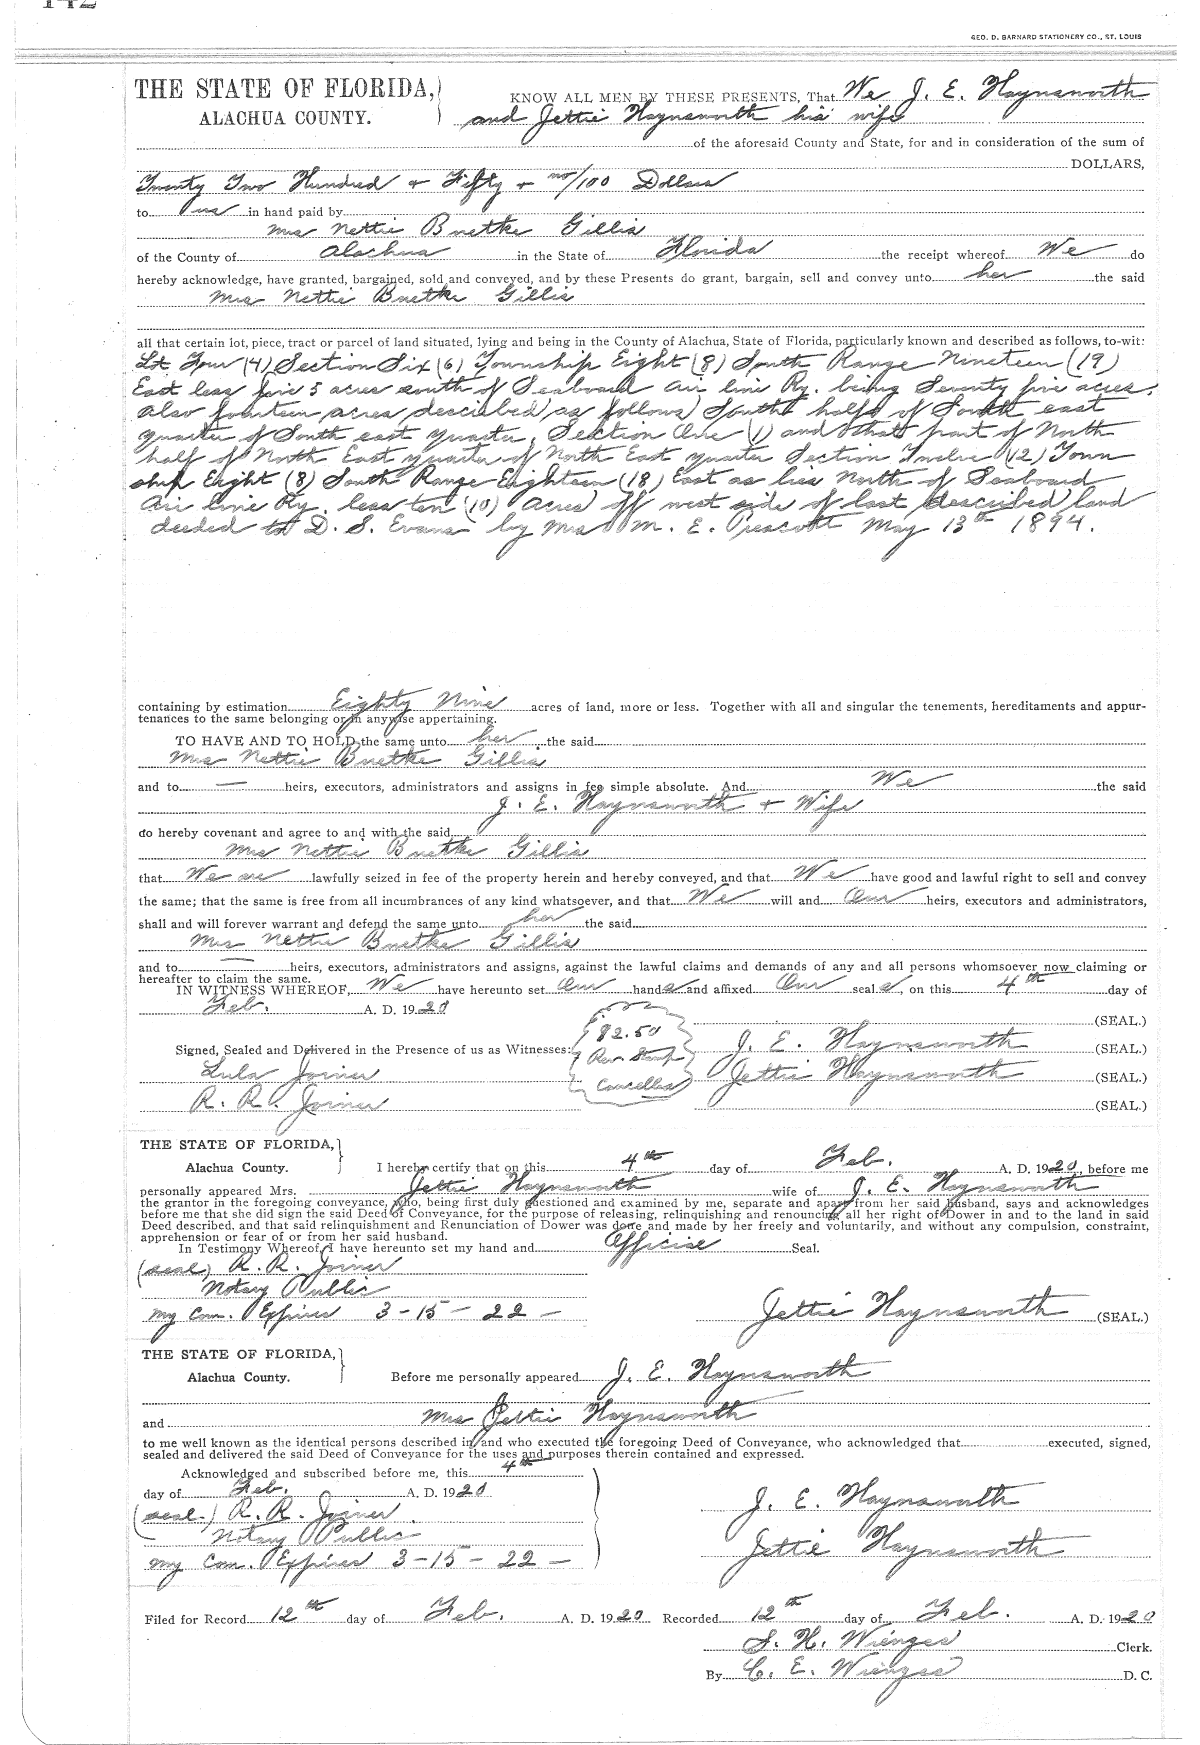 142
GEO. D. BARNARD STATIONERY CO., ST. LOUIS
THE STATE OF FLORIDA,
ALACHUA COUNTY.
KNOW ALL MEN BY THESE PRESENTS, That We J. E. Haynsworth
and Jettie Haynsworth his wife
of the aforesaid County and State, for and in consideration of the sum of
DOLLARS,
Twenty Two Hundred + Fifty + no/100 Dollars
to us in hand paid by
Mrs Nettie Buetke Gillis
of the County of Alachua in the State of Florida the receipt whereof We do
hereby acknowledge, have granted, bargained, sold and conveyed, and by these Presents do grant, bargain, sell and convey unto her the said
Mrs Nettie Buetke Gillis
all that certain lot, piece, tract or parcel of land situated, lying and being in the County of Alachua, State of Florida, particularly known and described as follows, to-wit:
Lot Four (4) Section Six (6) Township Eight (8) South Range Nineteen (19)
East less five 5 acres south of Seaboard Air line Ry. being Seventy five acres.
Also fourteen acres described as follows South half of South east
quarter of South east quarter, Section One (1) and that part of North
half of North East quarter of North East quarter Section Twelve (12) Town
ship Eight (8) South Range Eighteen (18) East as lies North of Seaboard
Air line Ry. less ten (10) acres off west side of last described land
deeded to D. S. Evans by Mrs M. E. Prescott May 13th 1894.
containing by estimation Eighty Nine acres of land, more or less. Together with all and singular the tenements, hereditaments and appur-
tenances to the same belonging or in anywise appertaining.
TO HAVE AND TO HOLD the same unto her the said
Mrs Nettie Buetke Gillis
and to — heirs, executors, administrators and assigns in fee simple absolute. And We the said
J. E. Haynsworth + Wife
do hereby covenant and agree to and with the said
Mrs Nettie Buetke Gillis
that We are lawfully seized in fee of the property herein and hereby conveyed, and that We have good and lawful right to sell and convey
the same; that the same is free from all incumbrances of any kind whatsoever, and that We will and Our heirs, executors and administrators,
shall and will forever warrant and defend the same unto her the said
Mrs Nettie Buetke Gillis
and to — heirs, executors, administrators and assigns, against the lawful claims and demands of any and all persons whomsoever now claiming or
hereafter to claim the same.
IN WITNESS WHEREOF, We have hereunto set Our hands and affixed Our seals, on this 4th day of
Feb. A. D. 1920
(SEAL.)
$2.50
Signed, Sealed and Delivered in the Presence of us as Witnesses: Rev Stamp J. E. Haynsworth (SEAL.)
Lula Joiner Cancelled Jettie Haynsworth (SEAL.)
R. R. Joiner (SEAL.)
THE STATE OF FLORIDA,
Alachua County. I hereby certify that on this 4th day of Feb. A. D. 1920, before me
personally appeared Mrs. Jettie Haynsworth wife of J. E. Haynsworth
the grantor in the foregoing conveyance, who, being first duly questioned and examined by me, separate and apart from her said husband, says and acknowledges
before me that she did sign the said Deed of Conveyance, for the purpose of releasing, relinquishing and renouncing all her right of Dower in and to the land in said
Deed described, and that said relinquishment and Renunciation of Dower was done and made by her freely and voluntarily, and without any compulsion, constraint,
apprehension or fear of or from her said husband.
In Testimony Whereof, I have hereunto set my hand and Seal.
(seal) R. R. Joiner
Notary Public
My Com. Expires 3-15-22 — Jettie Haynsworth (SEAL.)
THE STATE OF FLORIDA,
Alachua County. Before me personally appeared J. E. Haynsworth
and Mrs Jettie Haynsworth
to me well known as the identical persons described in and who executed the foregoing Deed of Conveyance, who acknowledged that executed, signed,
sealed and delivered the said Deed of Conveyance for the uses and purposes therein contained and expressed.
Acknowledged and subscribed before me, this 4th
day of Feb. A. D. 1920 J. E. Haynsworth
(seal.) R. R. Joiner
Notary Public Jettie Haynsworth
My Com. Expires 3-15-22 —
Filed for Record 12th day of Feb. A. D. 1920 Recorded 12th day of Feb. A. D. 1920
S. H. Wienges Clerk.
By C. E. Wienges D. C.